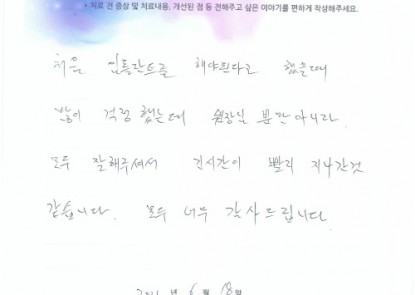 • 치료 전 증상 및 치료내용, 개선된 점 등 전해주고 싶은 이야기를 편하게 작성해주세요.
처음 임플란트를 해야된다고 했을때
많이 걱정 했는데 원장님 뿐만 아니라
모두 잘해주셔서 긴시간이 빨리 지나간것
같습니다. 모두 너무 감사드립니다.
년 6월 18일